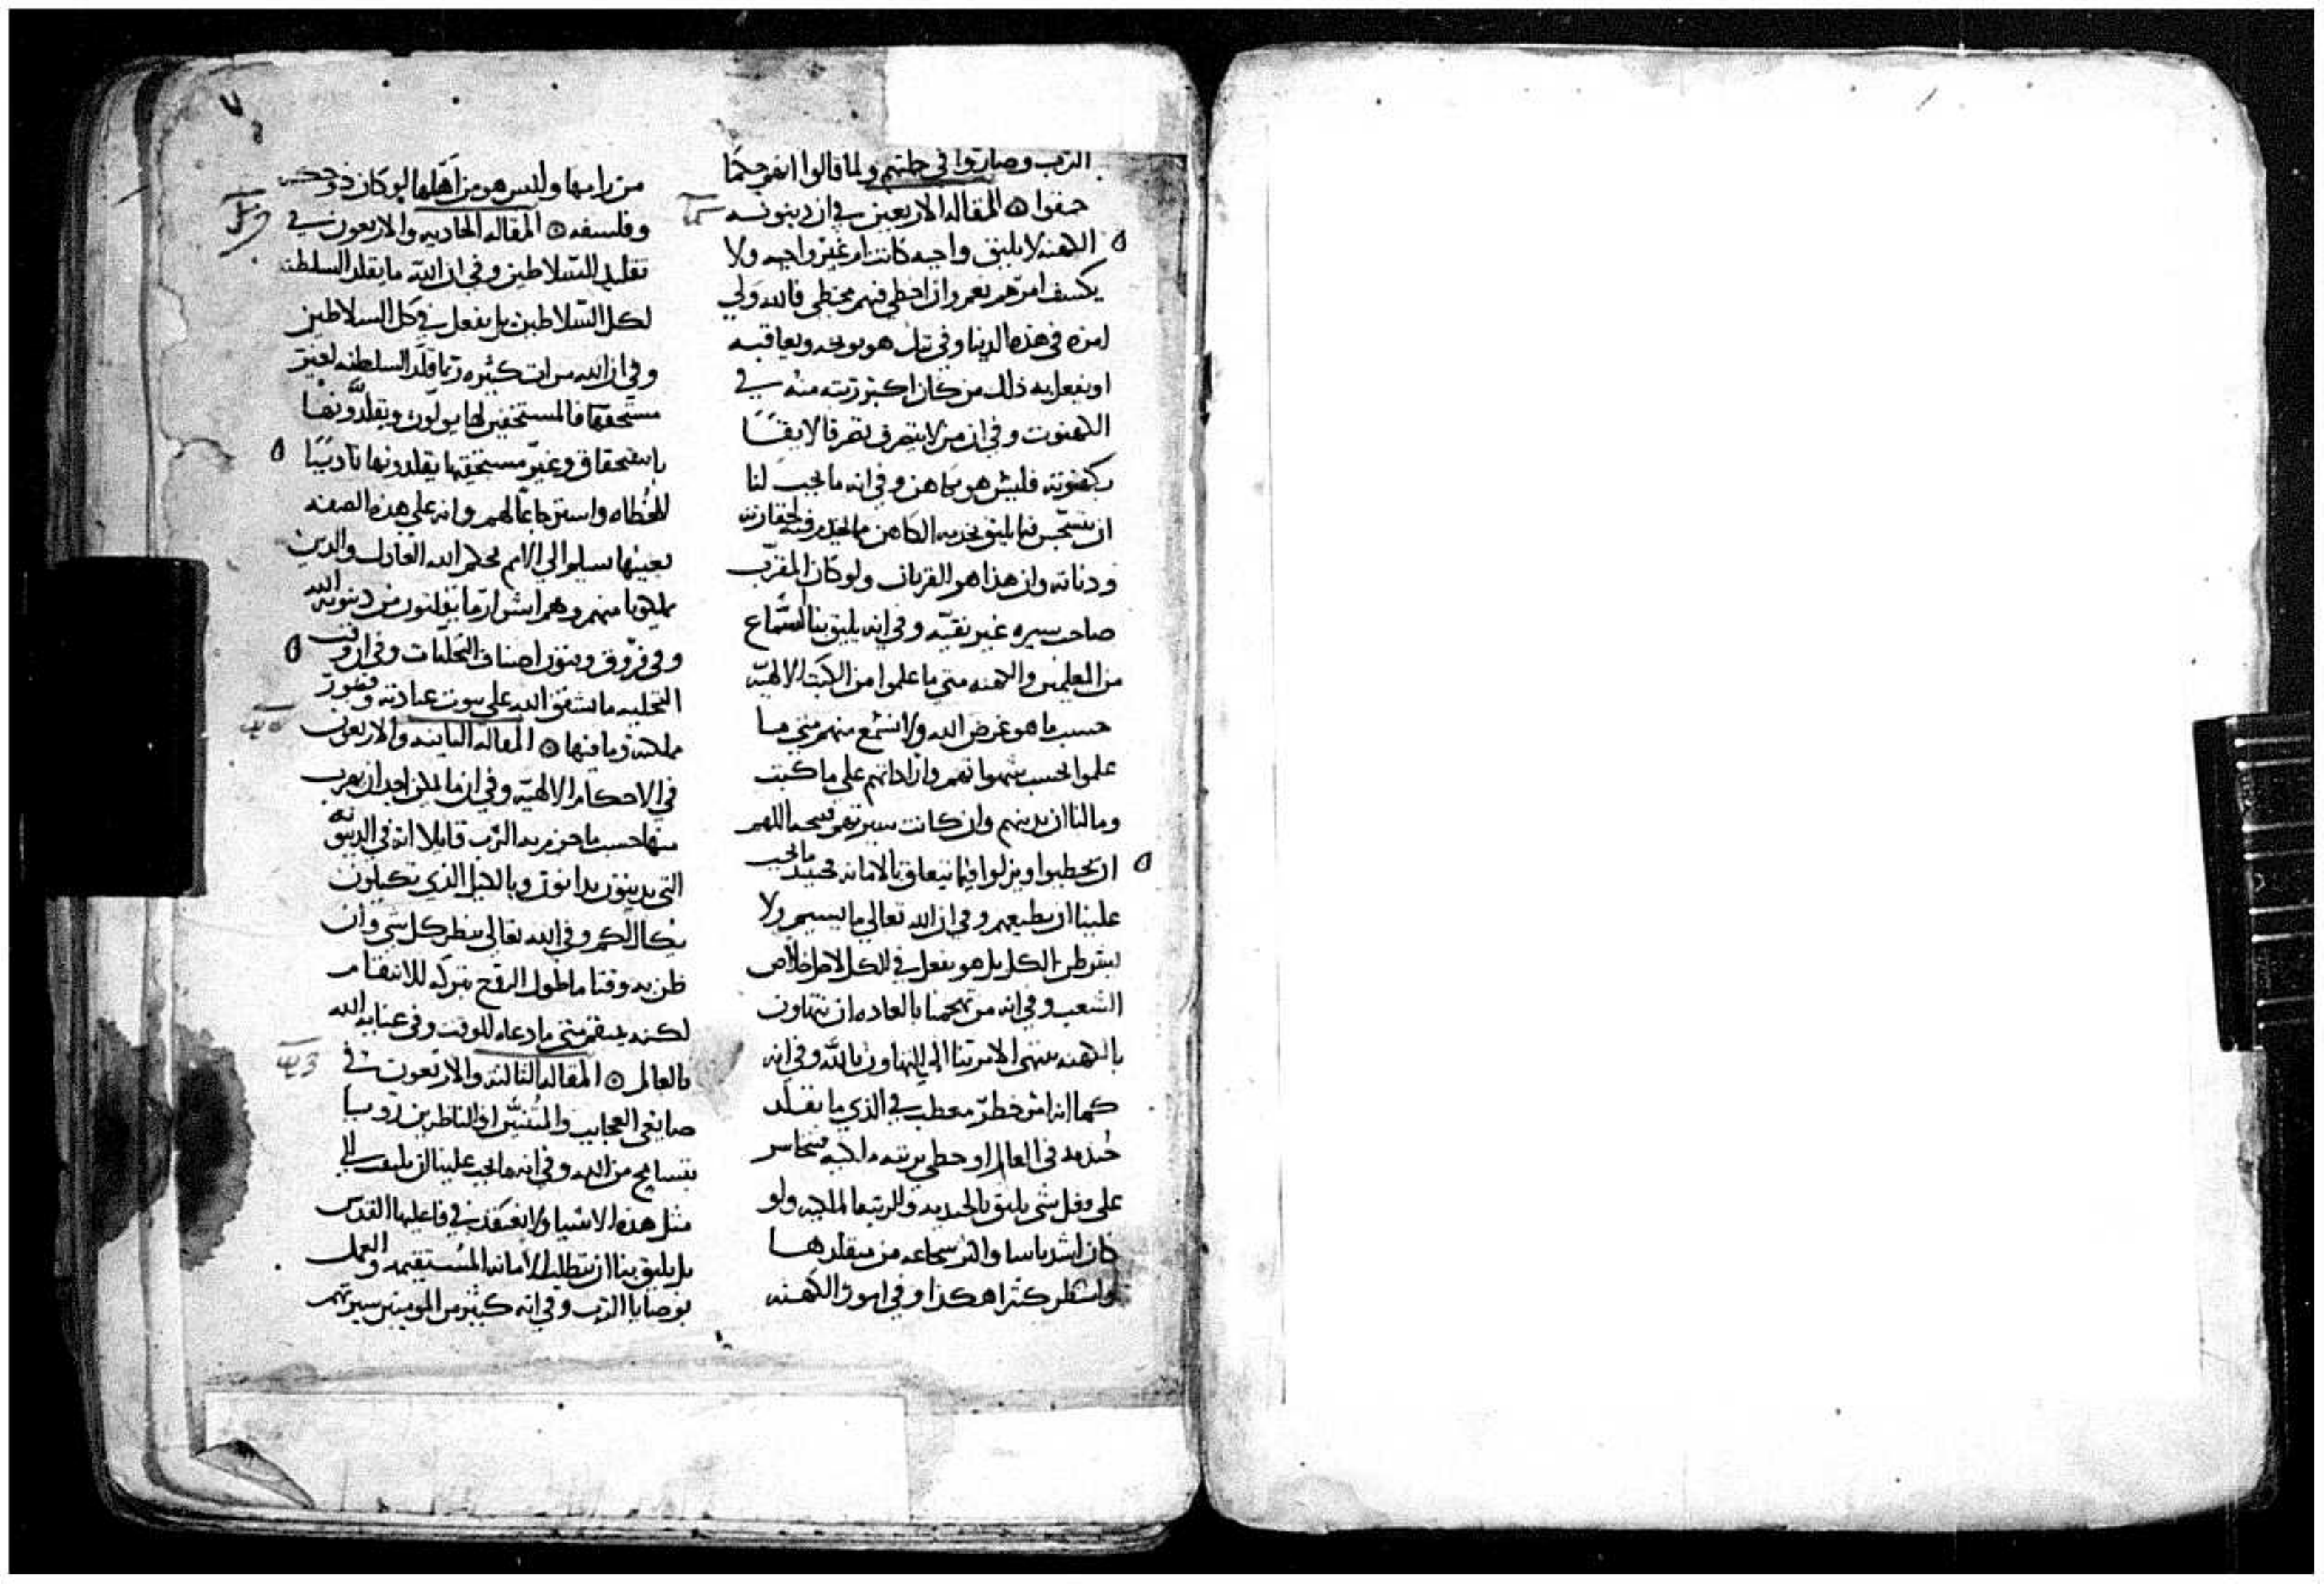 الرب وصاروا في جلتهم ولما قالوا انهم حكما
حمقوا ۞ المقاله الاربعين في ان دينونة
الكهنه لا يليق واجبه كانت ام غير واجبه ولا
يكشف امرهم نعم وان اخطي فيهم مخطي فالله ولي
امره في هذه الدنيا وفي تلك هو يوبخه ويعاقبه
او يفعل به ذلك من كان اكبر رتبه منه في
الكهنوت وفي ان من لا يتصرف تصرفا لايقًا
بكهنوته فليس هو بكاهن وفي انه ما يجب لنا
ان نتجسس فيما يليق بخدمه الكاهن
ودناته وان هذا هو القربان ولو كان المقرب
صاحب سيره غير نقيه وفي انه يليق بنا السماع
من المعلمين والكهنه متي ما علموا من الكتب الالهيه
حسب ما هو غرض الله ولا نسمع منهم متي ما
علموا بحسب شهواتهم واراداتهم علي ما كتبت
وما لنا ان ندينهم وان كانت سيرتهم قبيحه اللهم
ان يخطيوا او يزلوا فيما يتعلق بالامانه فحينيد ما يجب
علينا ان نطيعهم وفي ان الله تعالي ما يسيم ولا
يشرطن الكل بل هو يفعل في الكل لاجل خلاص
الشعب وفي انه من تهجمنا بالعاده ان نتهاون
بالكهنه ينتهي الامر بنا الي التهاون بالله وفي انه
كما انه امر خطر معطب في الذي ما تقلد
جنديه في العالم او حظي برتبه ملكيه فيتجاسر
علي وفل شي يليق بالجنديه والرتبه الملكيه ولو
كان اشد باسا واكثر شجاعه من متقلدها
هكذا وفي امور الكهنه
من رامها وليس هو من اهلها لو كان ذو حكمه
وفلسفه ۞ المقاله الحاديه والاربعون في
تقليد السلاطين وفي ان الله ما يقلد السلطنه
لكل السلاطين بل يفعل في كل السلاطين
وفي ان الله مرات كثيره ربما قلد السلطنه لغير
مستحقها فالمستحقين لها يولون ويتقلدونها
باستحقاق وغير مستحقيها يقلدونها تاديبًا
للخطاه واسترجاعا لهم وانه علي هذه الصفه
بعينها يسلموا الي الامم بحكم الله العادل والذين
يملكونا منهم وهم اشرار ما يفلتون من دينونه الله
وفي فروق وبنون اصناف التخليات وفي ان وقت
التخليه ما يشفق الله علي بيوت عبادته وقصور
مملكته وما فيها ۞ المقاله الثانيه والاربعون
في الاحكام الالهيه وفي ان ما يمكن احد ان يهرب
منها حسب ما حزم به الرب قايلا انه في الدينونه
التي تدينون تدانون وبالكيل الذي تكيلون
يكال لكم وفي الله تعالي ينظر كل شي وان
ظن به وقتا ما طول الروح بتركه للانتقام
لكنه ينتقم متي ما دعاه الوقت وفي عناية الله
بالعالم ۞ المقاله الثالثه والاربعون في
صانعي العجايب والمتنبين او الناظرين رويا
بتسامح من الله وفي انه ما يجب علينا ان نلتفت الي
مثل هذه الاشيا ولا نعتقد في فاعليها القدس
بل يليق بنا ان نتطلب الامانه المستقيمه والعمل
بوصايا الرب وفي انه كثير من المومنين سيرتهم